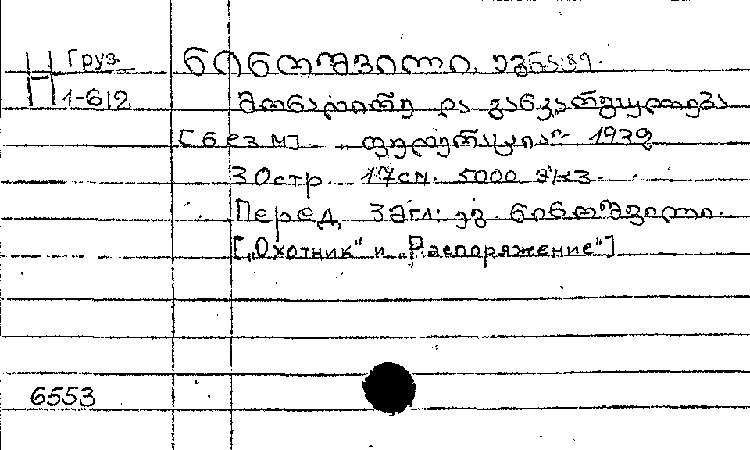 Н Груз
1-612
ნინოშვილი, ეგნატე.
მონადირე და განკარგულება
[без м] ფედერაცია 1932
30стр. 17см. 5000 экз.
Перед загл: ეგ. ნინოშვილი.
[„Охотник" и „Распоряжение"]
6553